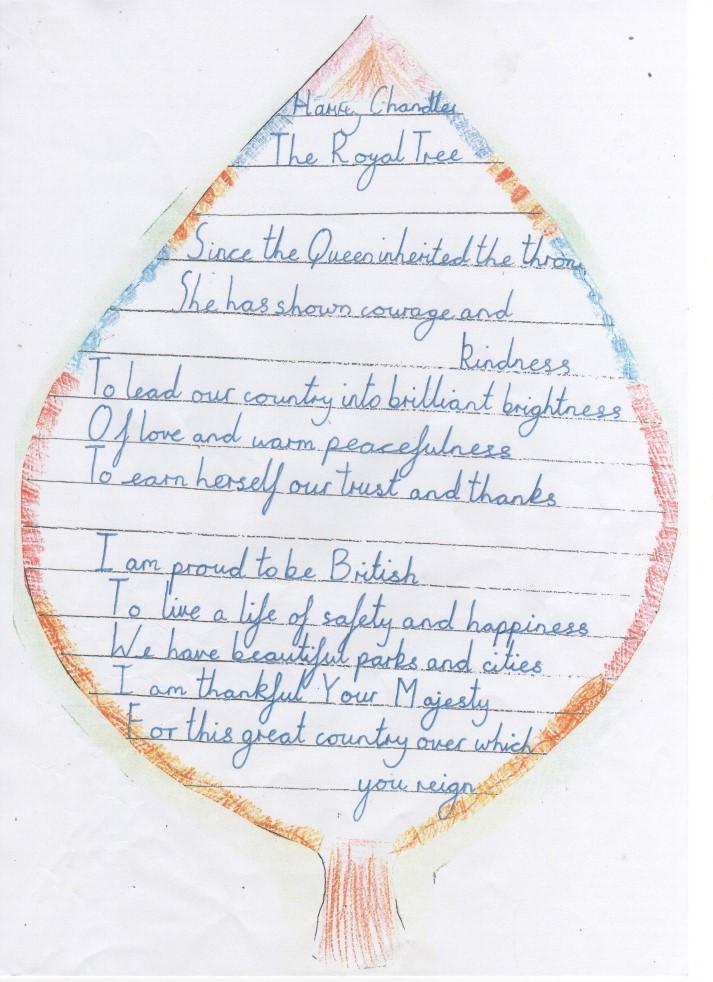 Harvey Chandler
The Royal Tree
Since the Queen inherited the throne
She has shown courage and
kindness
To lead our country into brilliant brightness
Of love and warm peacefulness
To earn herself our trust and thanks
I am proud to be British
To live a life of safety and happiness
We have beautiful parks and cities
I am thankful Your Majesty
For this great country over which
you reign